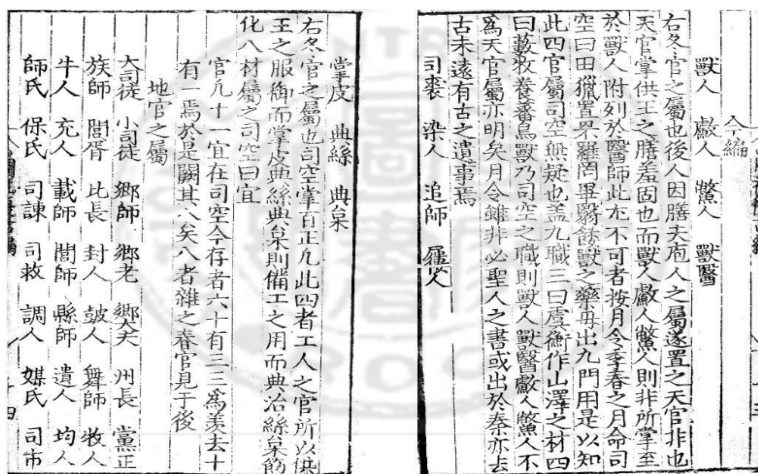 今編
獸人 䱷人 鱉人 獸醫
右冬官之屬也後人因膳夫庖人之屬遂置之天官非也
天官掌供王之膳羞固也而獸人䱷人鱉人則非所掌至
於獸人附列於醫師此尤不可者按月令季春之月命司
空曰田獵罝罘羅罔畢翳餧獸之藥毋出九門用是以知
此四官屬司空無疑也蓋九職三曰虞衡作山澤之材四
曰藪牧養蕃鳥獸乃司空之職則獸人獸醫䱷人鱉人不
爲天官屬亦明矣月令雖非必聖人之書或出於秦亦去
古未遠有古之遺事焉
司裘 染人 追師 屨人
掌皮 典絲 典枲
右冬官之屬也司空掌百正凡此四者工人之官所以供
王之服御而掌皮典絲典枲則備工之用而典治絲枲飭
化八材屬之司空曰宜
官凡十一宜在司空今存者六十有三三爲羨去十
有一焉於是闕其八矣八者雜之春官見于後
地官之屬
大司徒 小司徒 鄉師 鄉老 鄉大夫 州長 黨正
族師 閭胥 比長 封人 鼓人 舞師 牧人
牛人 充人 載師 閭師 縣師 遺人 均人
師氏 保氏 司諫 司救 調人 媒氏 司市